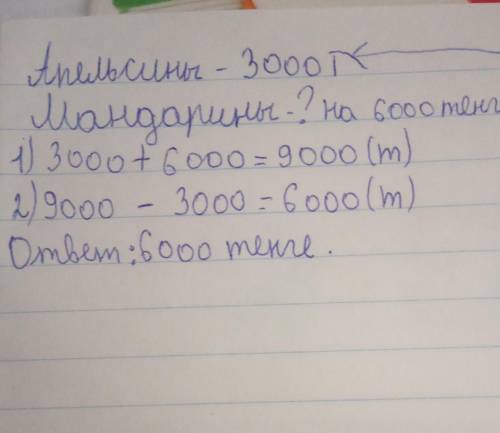 Апельсины - 3000т
Мандарины - ? на 6000 тенг
1) 3000 + 6000 = 9000 (т)
2) 9000 - 3000 = 6000 (т)
Ответ: 6000 тенге.